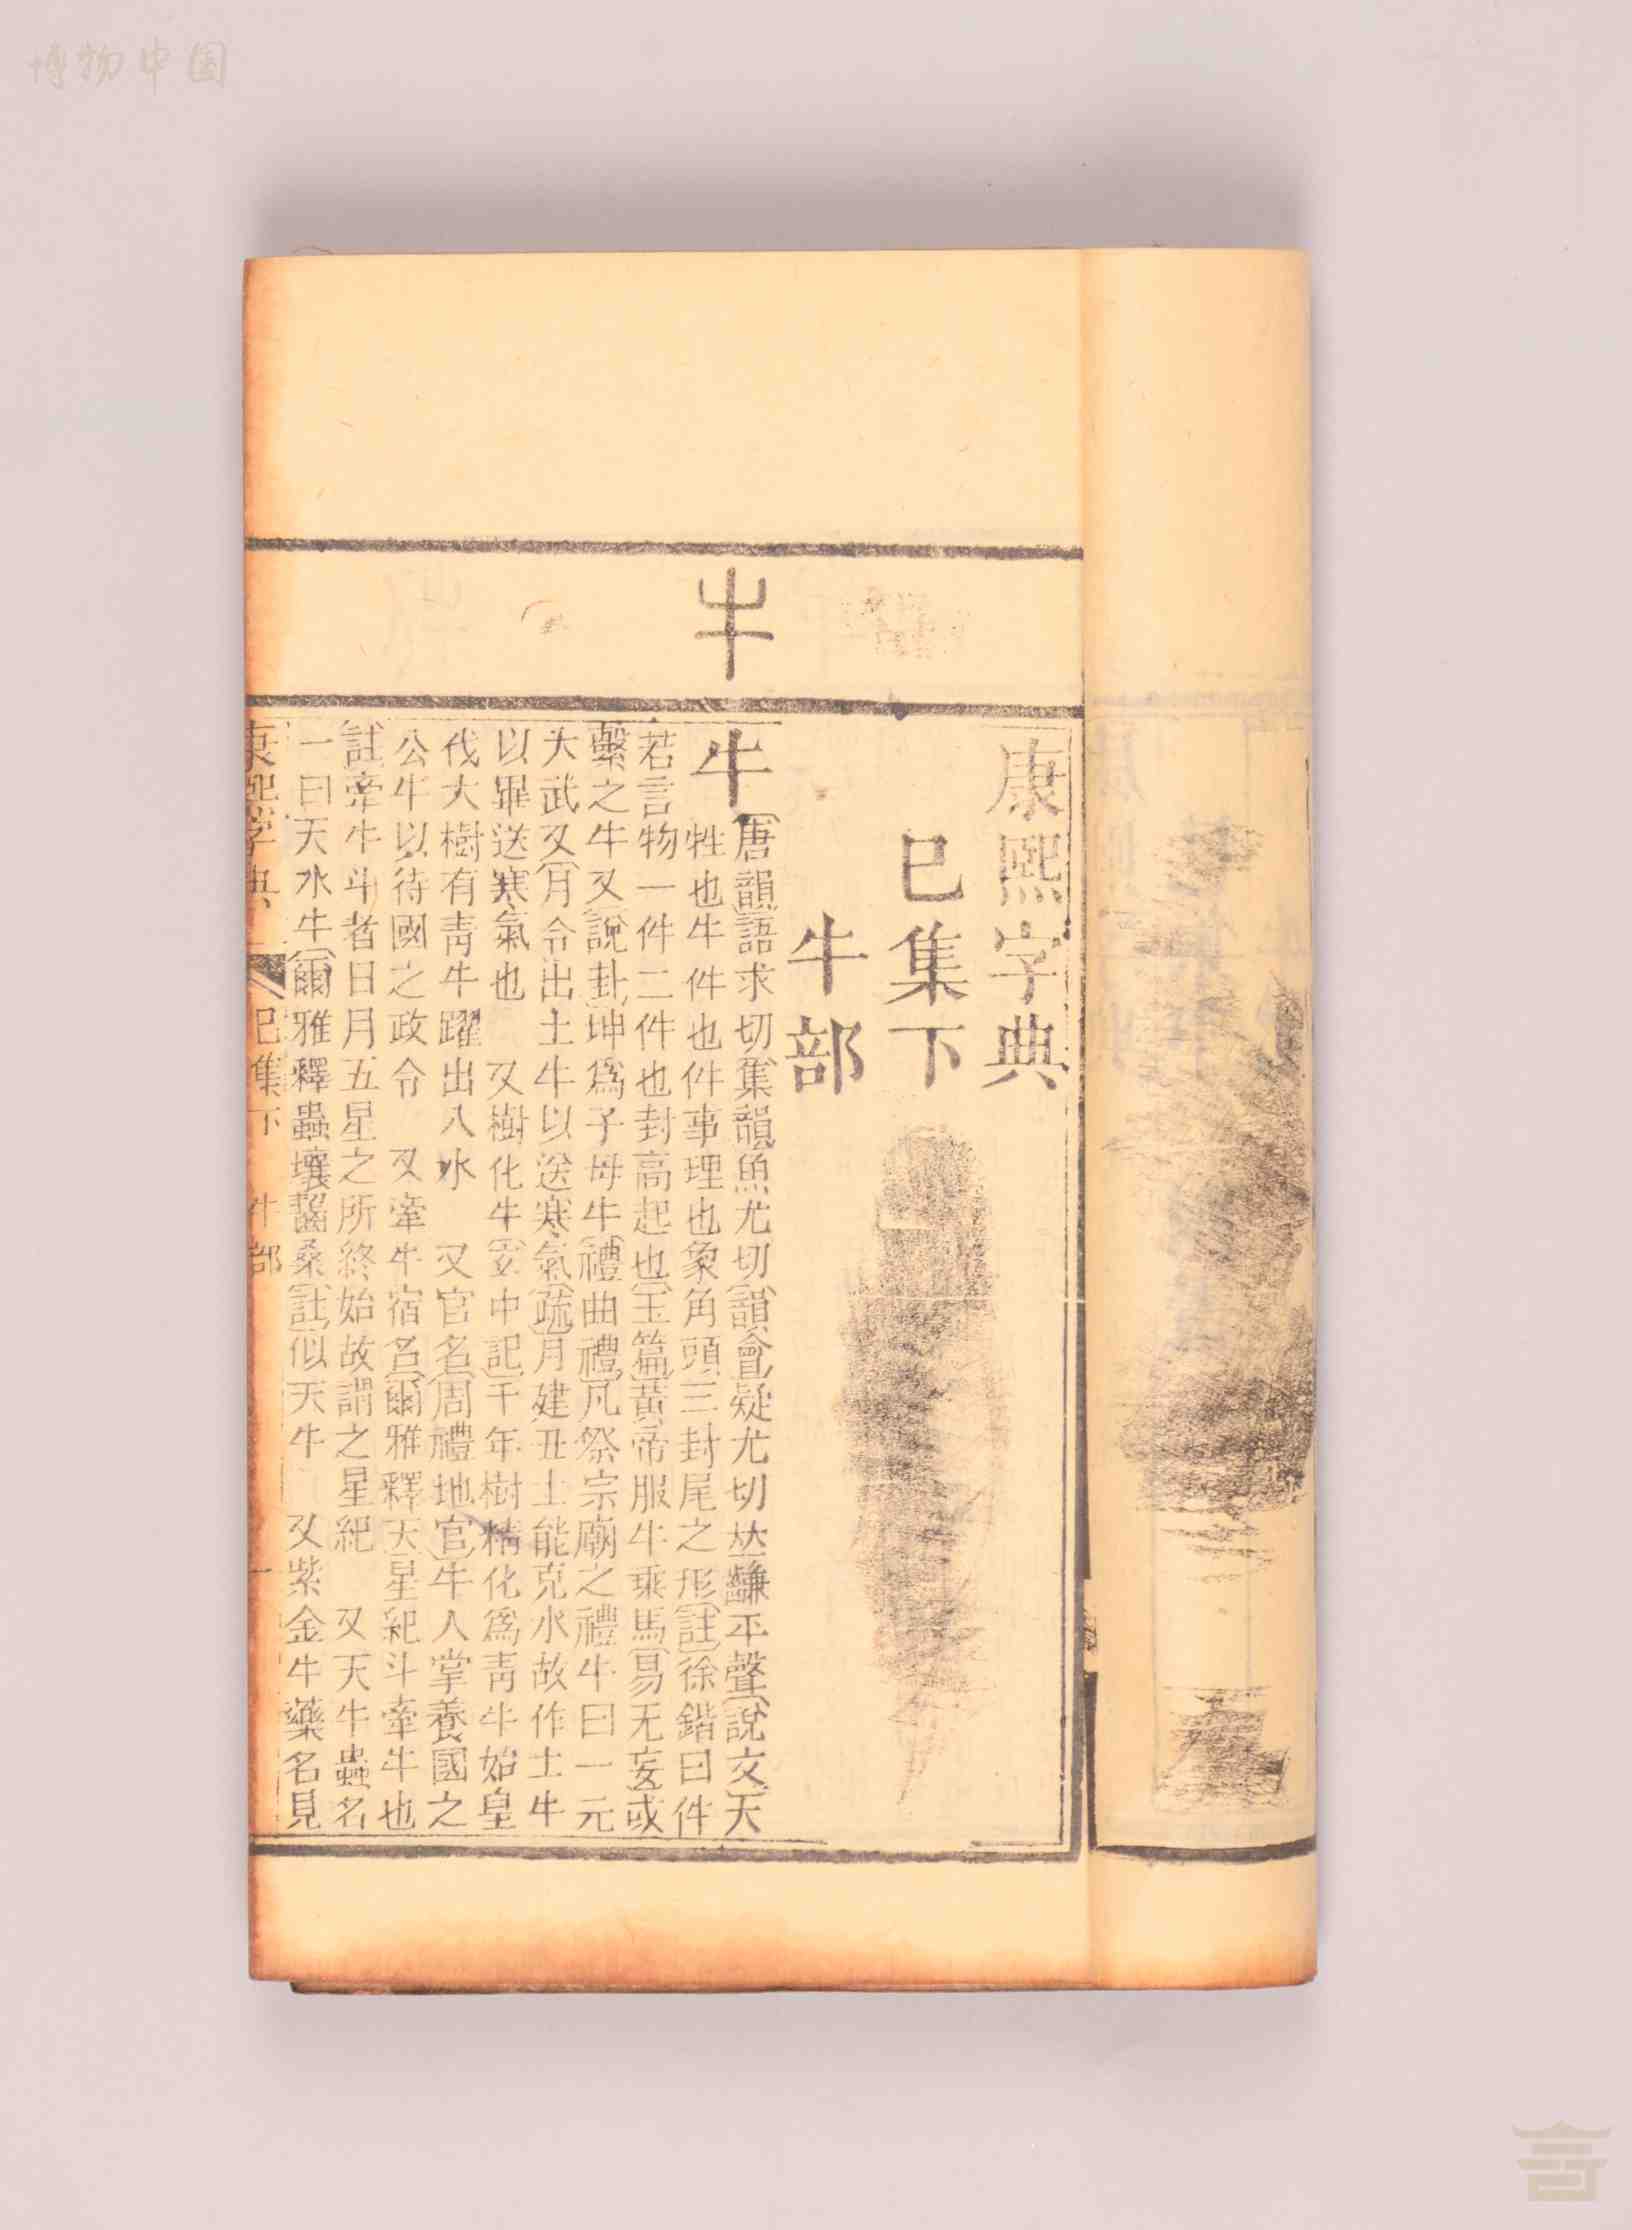 博物中国
牛
康熙字典
巳集下
牛部
牛
〔唐韻〕語求切〔集韻〕魚尤切〔韻會〕疑尤切𠀤𪘨平聲〔說文〕大
牲也牛件也件事理也象角頭三封尾之形〔註〕徐鍇曰件
若言物一件二件也封高起也〔玉篇〕黃帝服牛乘馬〔易无妄〕或
繫之牛又〔說卦〕坤爲子母牛〔禮曲禮〕凡祭宗廟之禮牛曰一元
大武又〔月令〕出土牛以送寒氣〔疏〕月建丑土能克水故作土牛
以畢送寒氣也 又樹化牛〔玄中記〕千年樹精化爲靑牛始皇
伐大樹有靑牛躍出入水 又官名〔周禮地官〕牛人掌養國之
公牛以待國之政令 又牽牛宿名〔爾雅釋天〕星紀斗牽牛也
〔註〕牽牛斗者日月五星之所終始故謂之星紀 又天牛蟲名
一曰天水牛〔爾雅釋蟲〕蠰齧桑〔註〕似天牛 又紫金牛藥名見
康熙字典 巳集下 牛部 一